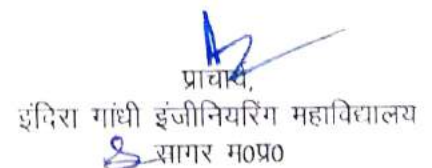 प्राचार्य,
इंदिरा गांधी इंजीनियरिंग महाविद्यालय
सागर म0प्र0